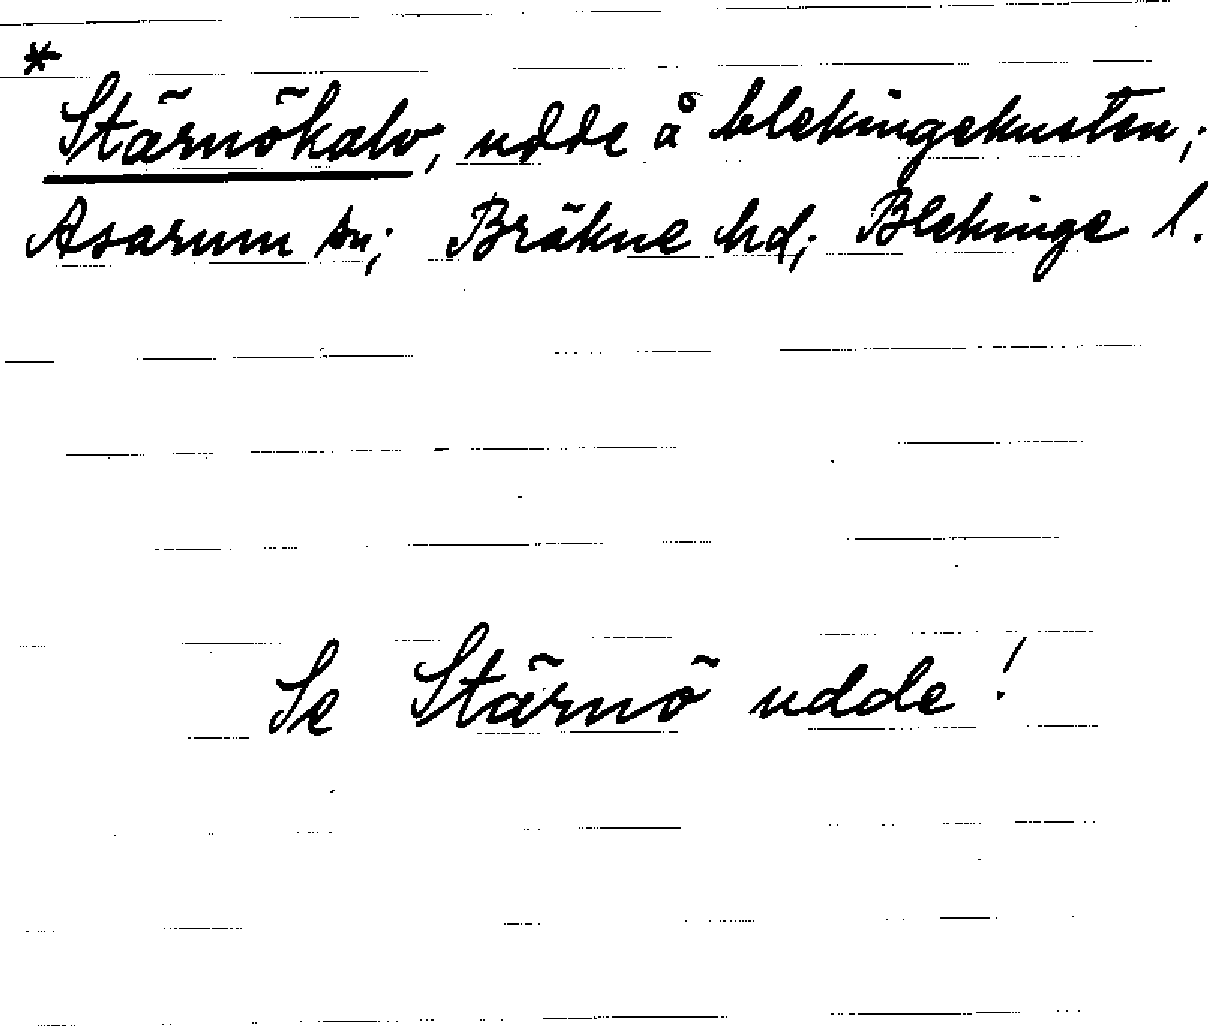 *
Stärnökalv, udde å blekingekusten;
Asarum sn; Bräkne hd; Blekinge l.
Se Stärnö udde!